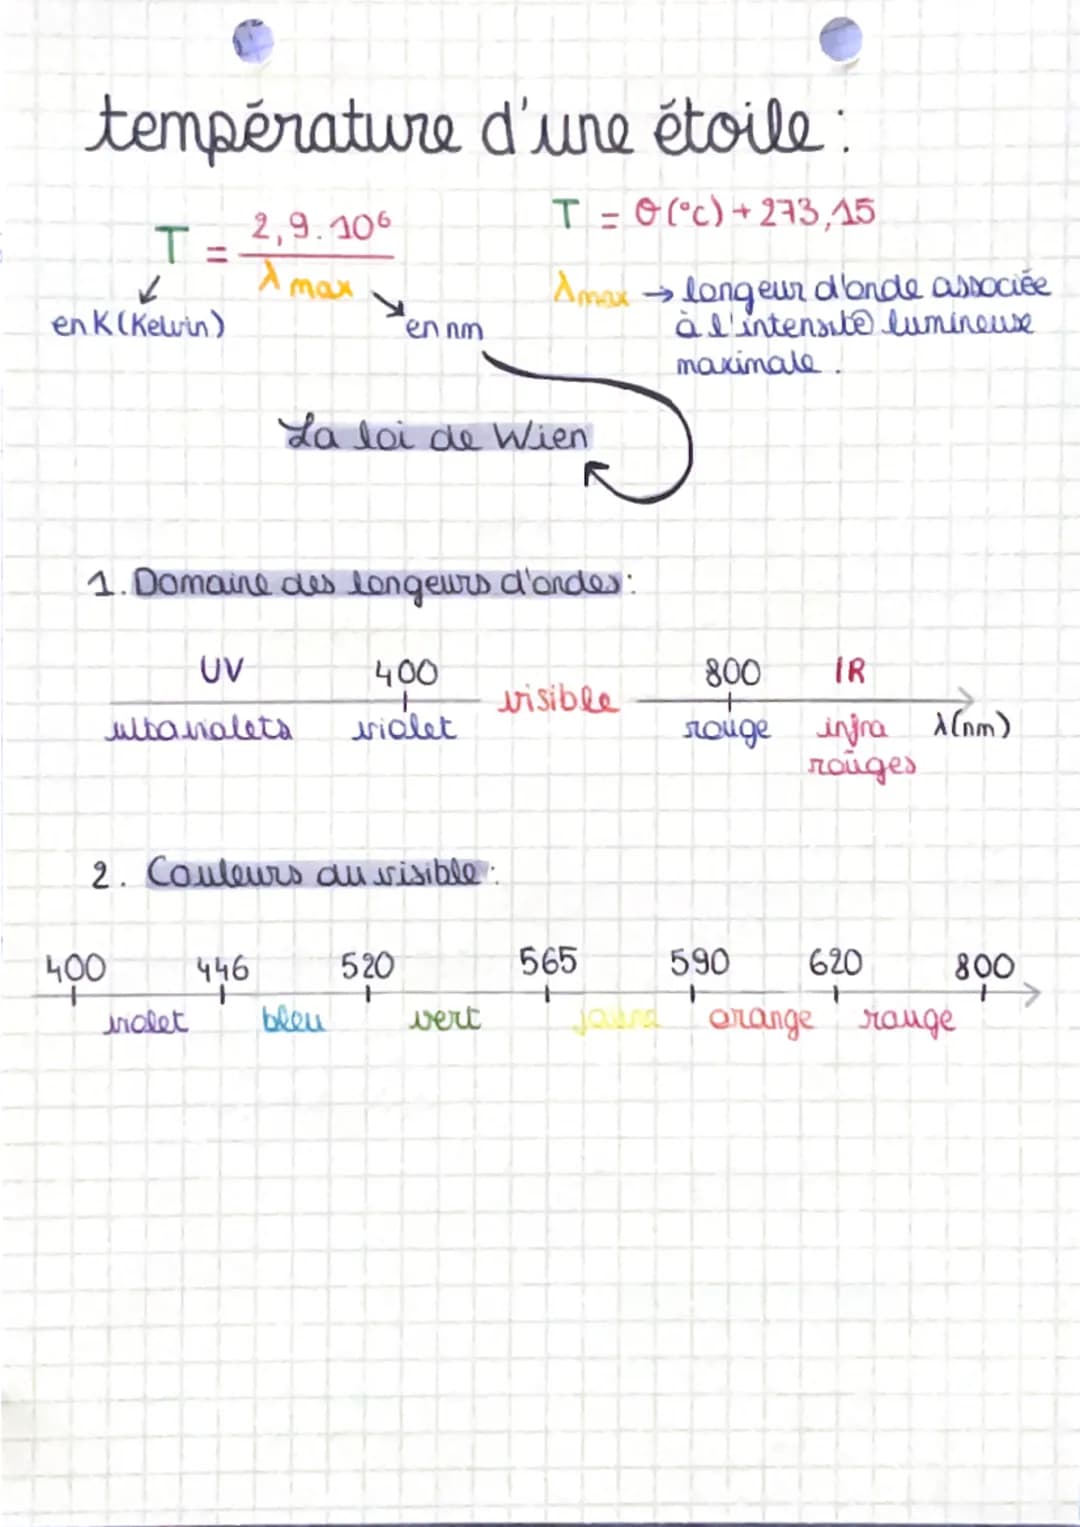 température d'une étoile :
T = 2,9.10⁶ / λmax
T = θ(°c) + 273,15
en K (Kelvin)
en nm
λmax → longeur d'onde associée
à l'intensité lumineuse
maximale.
La loi de Wien
1. Domaine des longeurs d'ondes :
UV 400 visible 800 IR
ultraviolets violet rouge infra λ(nm)
rouges
2. Couleurs du visible :
400 446 520 565 590 620 800
violet bleu vert jaune orange rouge